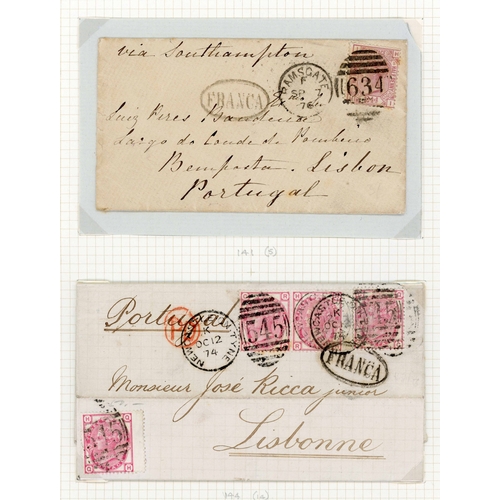 via Southampton
FRANCA
RAMSGATE
F
SP 7
76
634
Luiz Pires
Largo do Conde de Pombeiro
Bemposta. Lisbon
Portugal
141 (5)
Portugal
PD
NEWCASTLE ON TYNE
K
OC 12
74
545
FRANCA
Monsieur José Ricca junior
Lisbonne
545
144